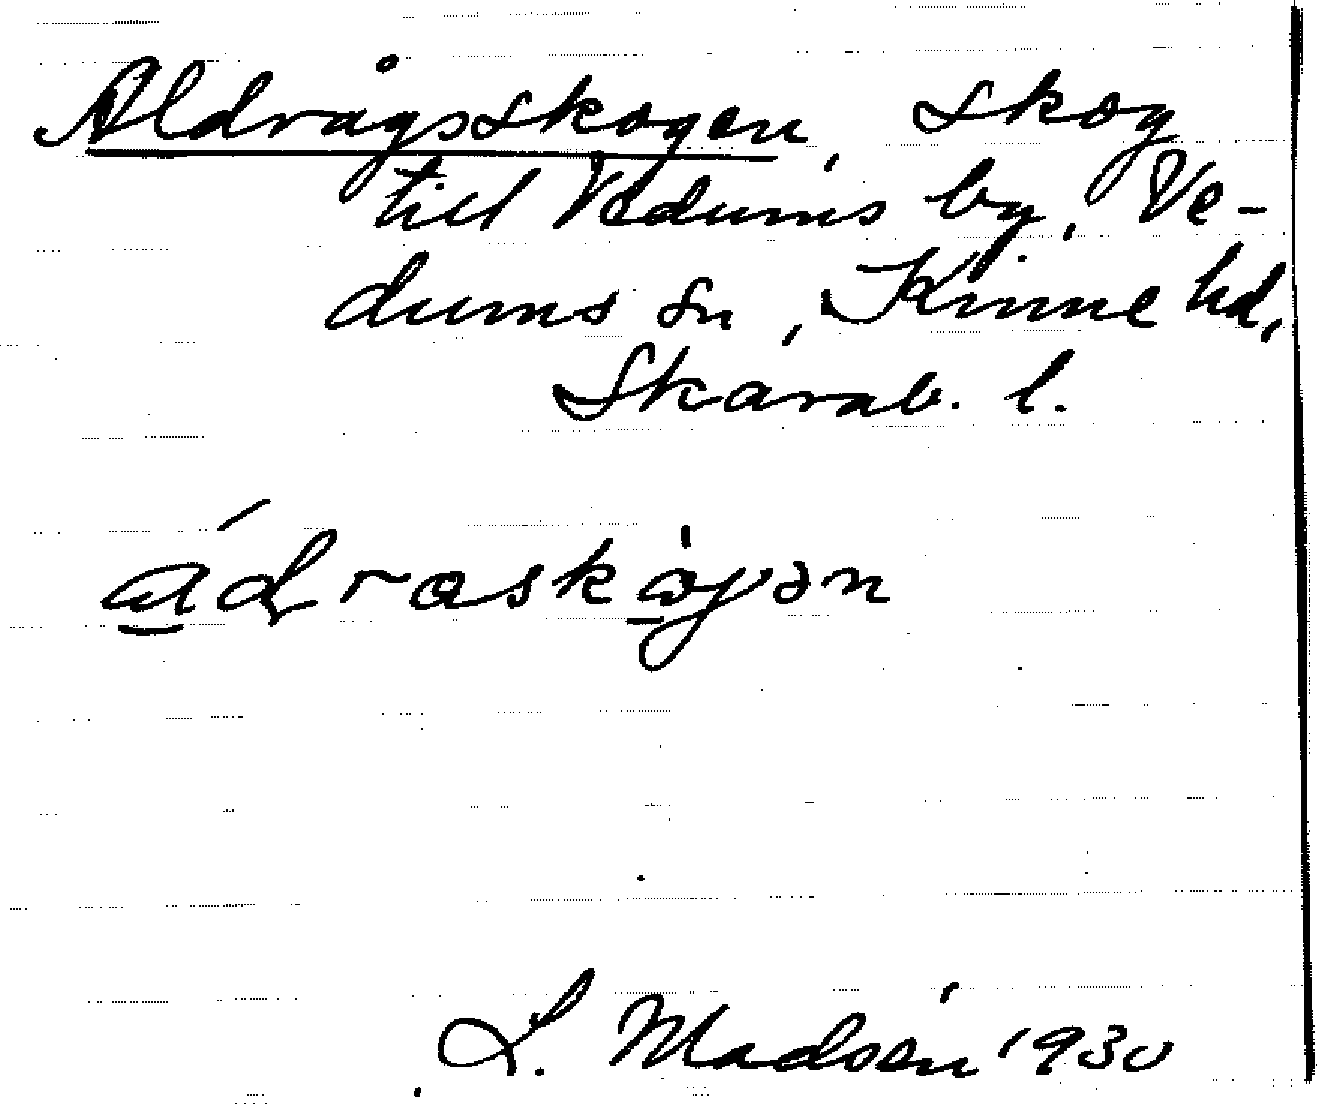 Aldrågsskogen, skog
till Vedums by, Ve-
dums sn, Kinne hd,
Skarab. l.
L. Madsén 1930